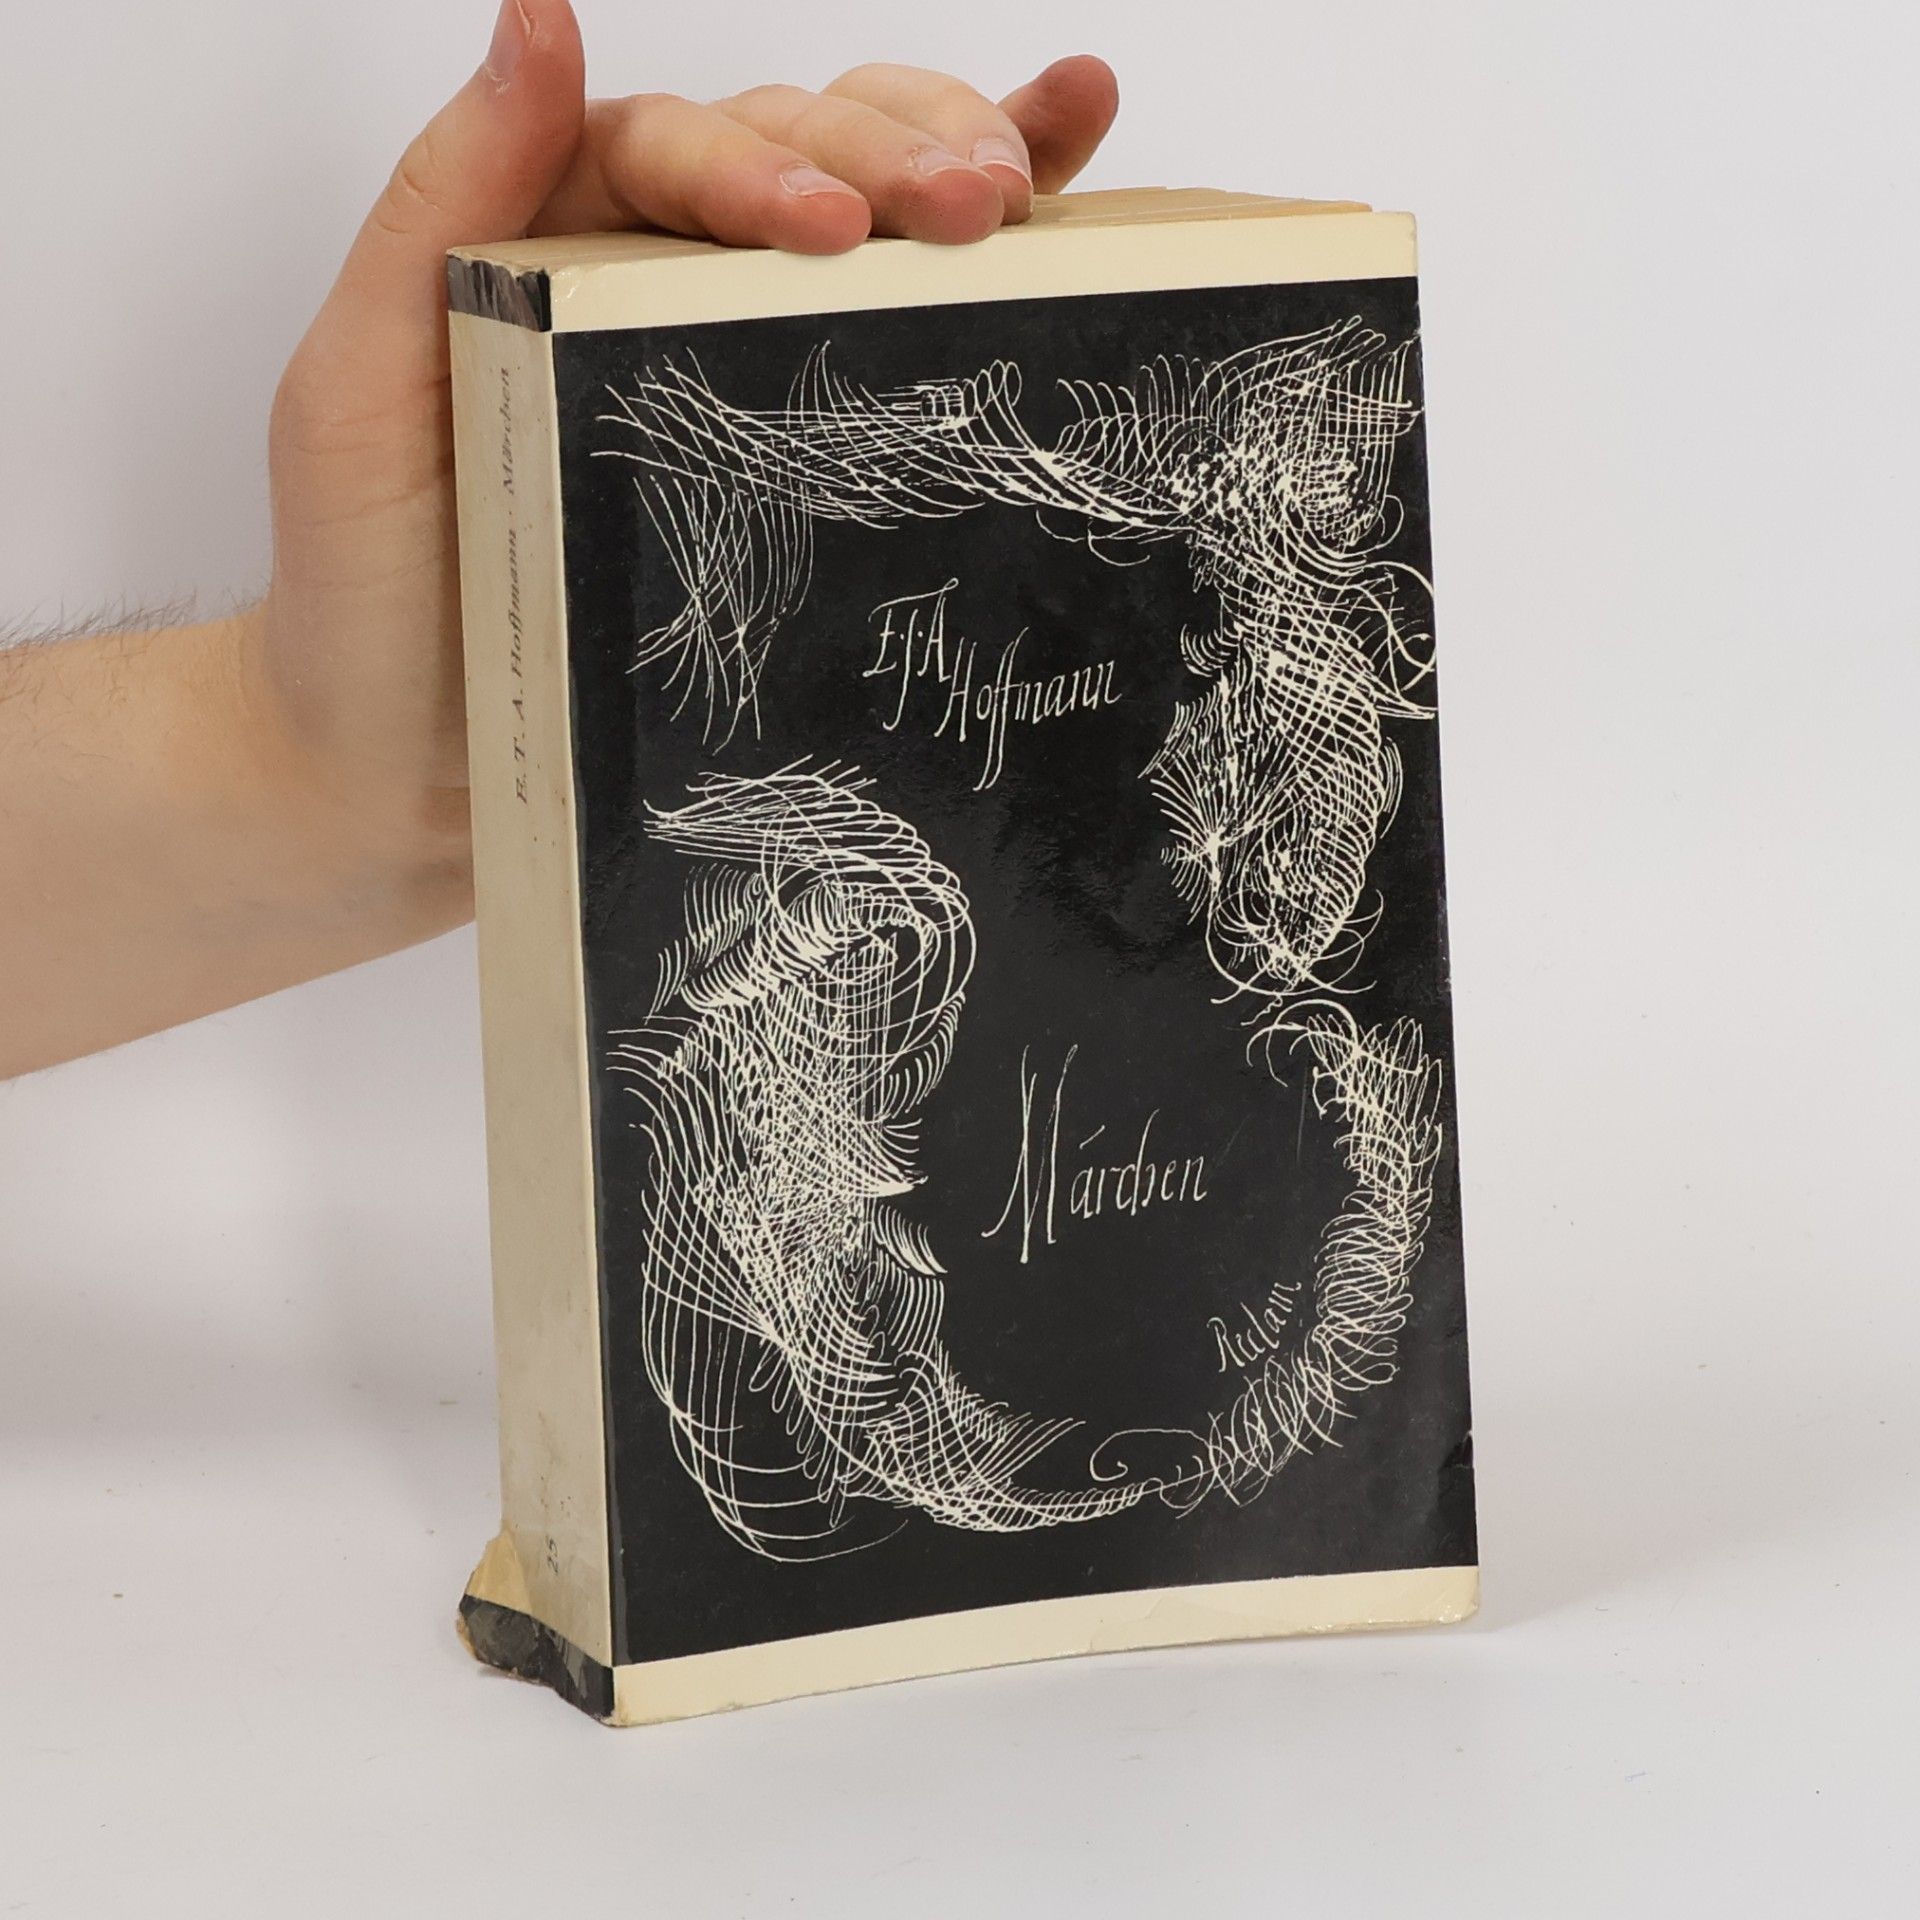 E. T. A. Hoffmann · Märchen
25
E·T·A
Hoffmann
Märchen
Reclam